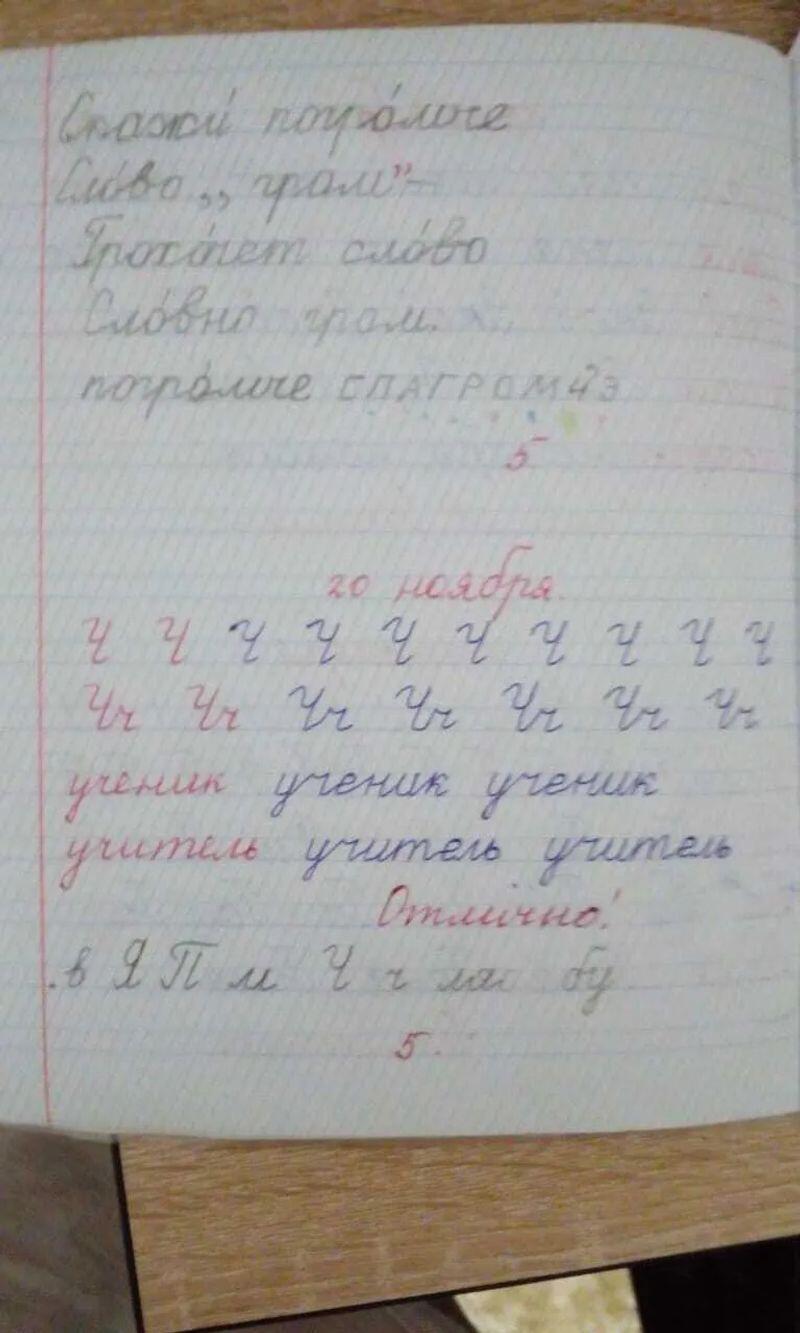 Скажи́ погро́мче
Сло́во „грам”–
Грохо́чет сло́во
Сло́вно грам.
погро́мче СПАГРОМЧЭ
5
20 ноября.
Ч Ч Ч Ч Ч Ч Ч Ч Ч Ч
Чч Чч Чч Чч Чч Чч Чч
ученик ученик ученик
учитель учитель учитель
Отлично!
в Я П м Ч ч ма бу
5.